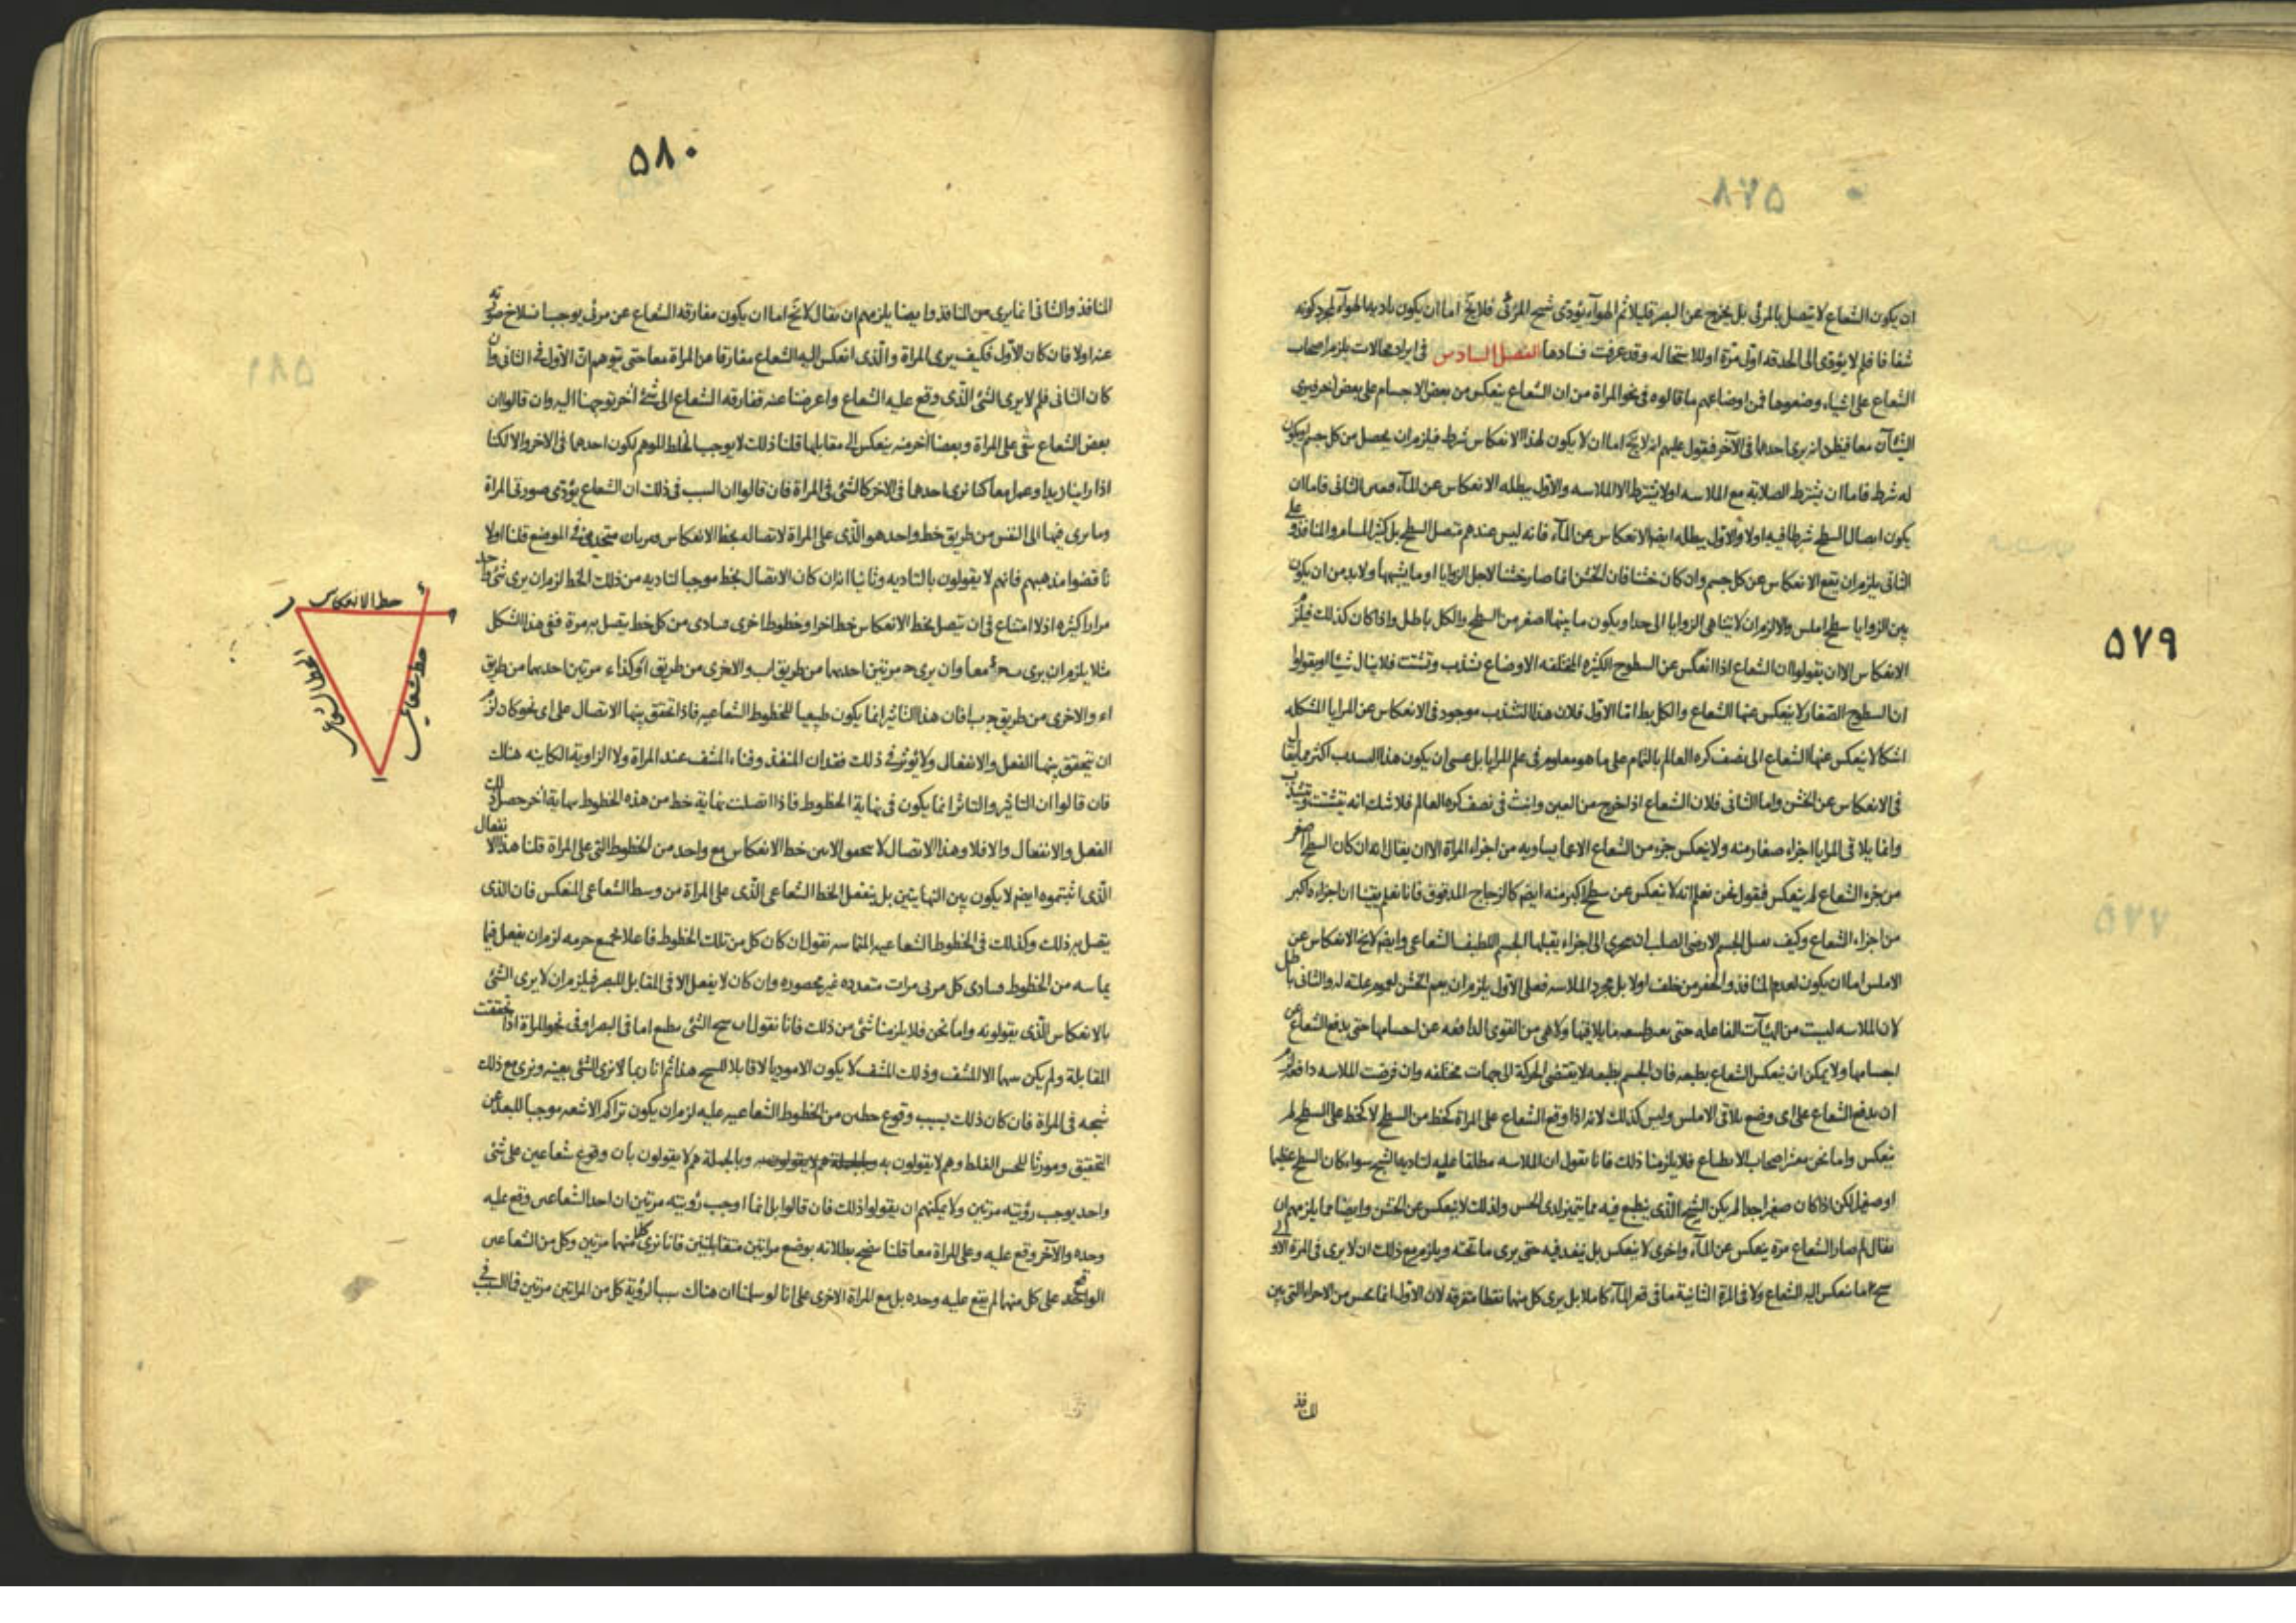 ٥٧٩
ان يكون الشعاع لا يتصل بالمرئى بل يخرج عن البصر قليلا ثم الهواء يؤدى شبح المرئى فلا يخ اما ان يكون تاديه الهواء لمجرد كونه
شفافا فلم لا يؤدى الى الحدقه اول مرة او للاستحاله وقد عرفت فسادها الفصل السادس فى ايراد محالات يلزم اصحاب
الشعاع على اشياء وضعوها فمن اوضاعهم ما قالوه فى نحو المراة من ان الشعاع ينعكس من بعض الاجسام على بعض اخر فيرى
الشيئان معا فيظن انه يرى احدهما فى الآخر فيقول عليهم انه لا يخ اما ان لا يكون لهذا الانعكاس شرط فيلزم ان يحصل من كل جسم او يكون
له شرط فاما ان يشترط الصلابة مع الملاسه او لا يشترط الا الملاسه والاول يبطله الانعكاس عن الماء وعلى الثانى فاما ان
يكون اتصال السطح شرطا فيه اولا والاول يبطله ايضا الانعكاس عن الماء فانه ليس عندهم متصل السطح بل كثير المسام والمنافذ وعلى
الثانى يلزم ان يقع الانعكاس عن كل جسم وان كان خشنا فان الخشن انما صار خشنا لاجل الزوايا او ما يشبهها ولا بد من ان يكون
بين الزوايا سطح املس والا لزم ان لا يتناهى الزوايا الى حد او يكون ما بينهما اصغر من السطح والكل باطل واذا كان كذلك فيلزم
الانعكاس الا ان يقولوا ان الشعاع اذا انعكس عن السطوح الكثيره المختلفه الاوضاع تشذب وتشتت فلا ينال شيئا او يقولوا
ان السطوح الصغار لا ينعكس عنها الشعاع والكل بط اما الاول فلان هذا التشذب موجود فى الانعكاس عن المرايا المشكله
اشكالا ينعكس عنها الشعاع الى نصف كره العالم بالتمام على ما هو معلوم فى علم المرايا بل عسى ان يكون هذا التشذب اكثر مما يقال
فى الانعكاس عن الخشن واما الثانى فلان الشعاع اذا خرج من العين وانبث فى نصف كره العالم فلا شك انه يتشتت وتشذب
وانما يلاقى المرايا اجزاء صغار منه ولا ينعكس جزء من الشعاع الا عما يساويه من اجزاء المراة الا ان يقال انه ان كان السطح اصغر
من جزء الشعاع لم ينعكس فيقول نحن نعلم انه لا ينعكس عن سطح اكبر منه ايضا كالزجاج المدقوق فانا نعلم يقينا ان اجزاءه اكبر
من اجزاء الشعاع وكيف الجسم الارضى الصلب ان يتجزى الى اجزاء يقبلها الجسم اللطيف الشعاعى وايضا لا يخ الانعكاس عن
الاملس اما ان يكون لعدم المنافذ والحفر من خلف اولا بل مجرد الملاسه فعلى الاول يلزم ان يعم الخشن لعموم علته له والثانى باطل
لان الملاسه ليست من الهيآت الفاعله حتى يلاقيها ولا هى من القوى الدافعه عن اجسامها حتى يدفع الشعاع عن
اجسامها ولا يمكن ان ينعكس الشعاع بطبعه فان الجسم بطبعه لا يقتضى الحركة الى جهات مختلفه وان فرضت الملاسه دافعه لزم
ان يدفع الشعاع على اى وضع يلاقى الاملس وليس كذلك لانه اذا وقع الشعاع على المراة كخط من السطح لا كخط على السطح لم
ينعكس واما نحن معشر اصحاب الانطباع فلا يلزمنا ذلك فانا نقول ان الملاسه مطلقا عليه لتاديه الشبح سواء كان السطح عظيما
او صغيرا لكن اذا كان صغيرا جدا لم يكن الشبح الذى ينطبع فيه مما يتميز لدى الحس ولذلك لا ينعكس عن الخشن وايضا مما يلزمهم ان
يقال لم صار الشعاع مرة ينعكس عن الماء واخرى لا ينعكس بل ينفذ فيه حتى يرى ما تحته ويلزم مع ذلك ان لا يرى فى المرة الاولى
شبح ما ينعكس اليه الشعاع ولا فى المرة الثانية ما فى قعر الماء كاملا بل يرى كل منهما نقطا متفرقه لان الاول انما يحس من الاجزاء التى بين
المنافذ
٥٨٠
المنافذ والثانى انما يرى من النافذ وايضا يلزمهم ان يقال لا يخ اما ان يكون مفارقه الشعاع عن مرئى يوجب انسلاخ صورته
عنه اولا فان كان الاول فكيف يرى المراة والذى انعكس اليه الشعاع مفارقا عن المراة معا حتى يتوهم ان الاول فى الثانى وان
كان الثانى فلم لا يرى الشئ الذى وقع عليه الشعاع واعرضنا عنه ففارقه الشعاع الى شئ اخر توجهنا اليه وان قالوا ان
بعض الشعاع يبقى على المراة وبعضا اخر منه ينعكس الى مقابلها قلنا ذلك لا يوجب الخلط الموهم لكون احدهما فى الاخر والا لكنا
اذا راينا زيدا وعمرا معا كنا نرى احدهما فى الاخر كالشئ فى المراة فان قالوا ان السبب فى ذلك ان الشعاع يؤدى صورة المراة
وما يرى فيها الى النفس من طريق خط واحد هو الذى على المراة لاتصاله بخط الانعكاس الموضع قلنا اولا
ناقضوا مذهبهم فانهم لا يقولون بالتاديه وثانيا انه ان كان الاتصال بخط موجبا لتاديه من ذلك الخط لزم ان يرى شئ واحد
مرارا كثيره اذ لا امتناع فى ان يتصل بخط الانعكاس خط اخر او خطوط اخرى فيتادى من كل خط يتصل به مرة ففى هذا الشكل
مثلا يلزم ان يرى معا وان يرى مرتين احدهما من طريق اب والاخرى من طريق وكذا مرتين احدهما من طريق
اء والاخرى من طريق فان هذا التاثير انما يكون طبيعيا للخطوط الشعاعيه فاذا تحقق بينهما الاتصال على اى نحو كان لزم
ان يتحقق بينهما الفعل والانفعال ولا يؤثر فى ذلك فقدان المنفذ وفناء المشف عند المراة ولا الزاوية الكاينه هناك
فان قالوا ان التاثير والتاثر انما يكون فى نهاية الخطوط فاذا اتصلت نهاية خط من هذه الخطوط بنهاية اخر حصل ذلك
الفعل والانفعال والا فلا وهذا الاتصال لا بين خط الانعكاس مع واحد من الخطوط التى على المراة قلنا هذا الانفعال
الذى اثبتموه ايضا لا يكون بين النهايتين بل ينفعل الخط الشعاعى الذى على المراة من وسط الشعاعى المنعكس فان الذى
يتصل به ذلك وكذلك فى الخطوط الشعاعيه المتماسه نقول ان كان كل من تلك الخطوط فاعلا لزم ان يفعل فيما
يماسه من الخطوط فيتادى كل مرئى مرات متعدده غير محصوره وان كان لا يفعل الا فى المقابل للبصر فيلزم ان لا يرى الشئ
بالانعكاس الذى يقولونه واما نحن فلا يلزمنا شئ من ذلك فانا نقول ان شبح الشئ ينطبع اما فى البصر او فى نحو المراة اذا تحققت
المقابلة ولم يكن بينهما الا المشف وذلك المشف لا يكون الا موديا لا قابلا للشبح هذا ثم انا ربما لا نرى الشئ بعينه ونرى مع ذلك
شبحه فى المراة فان كان ذلك بسبب وقوع خطين من الخطوط الشعاعيه عليه لزم ان يكون تراكم الاشعه موجبا للبعد عن
التحقيق ومورثا للحس الغلط وهم لا يقولون به وبالجملة هم لا يقولون بان وقوع شعاعين على شئ
واحد يوجب رؤيته مرتين ولا يمكنهم ان يقولوا ذلك فان قالوا بل انما اوجب رؤيته مرتين ان احد الشعاعين وقع عليه
وحده والآخر وقع عليه وعلى المراة معا قلنا يتضح بطلانه بوضع مراتين متقابلتين فانا نرى كلا منهما مرتين وكل من الشعاعين
الواقع على كل منهما لم يقع عليه وحده بل مع المراة الاخرى على انا لو سلمنا ان هناك سببا لرؤية كل من المراتين مرتين فما السبب فى
خط الانعكاس
خط شعاعى
الخط الشعاعى